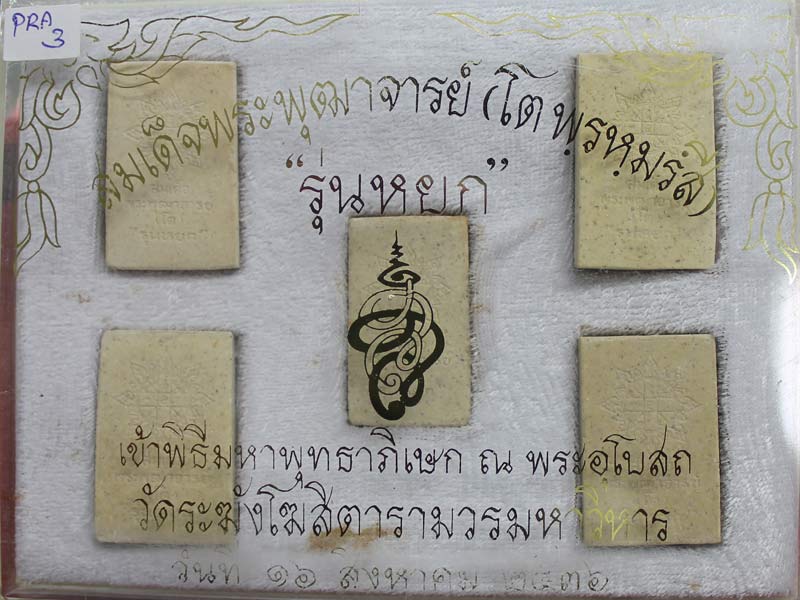 PRA
3
สมเด็จพระพุฒาจารย์ (โต พฺรหฺมรํสี)
"รุ่นหยก"
เข้าพิธีมหาพุทธาภิเษก ณ พระอุโบสถ
วัดระฆังโฆสิตารามวรมหาวิหาร
วันที่ ๑๖ สิงหาคม ๒๕๓๖